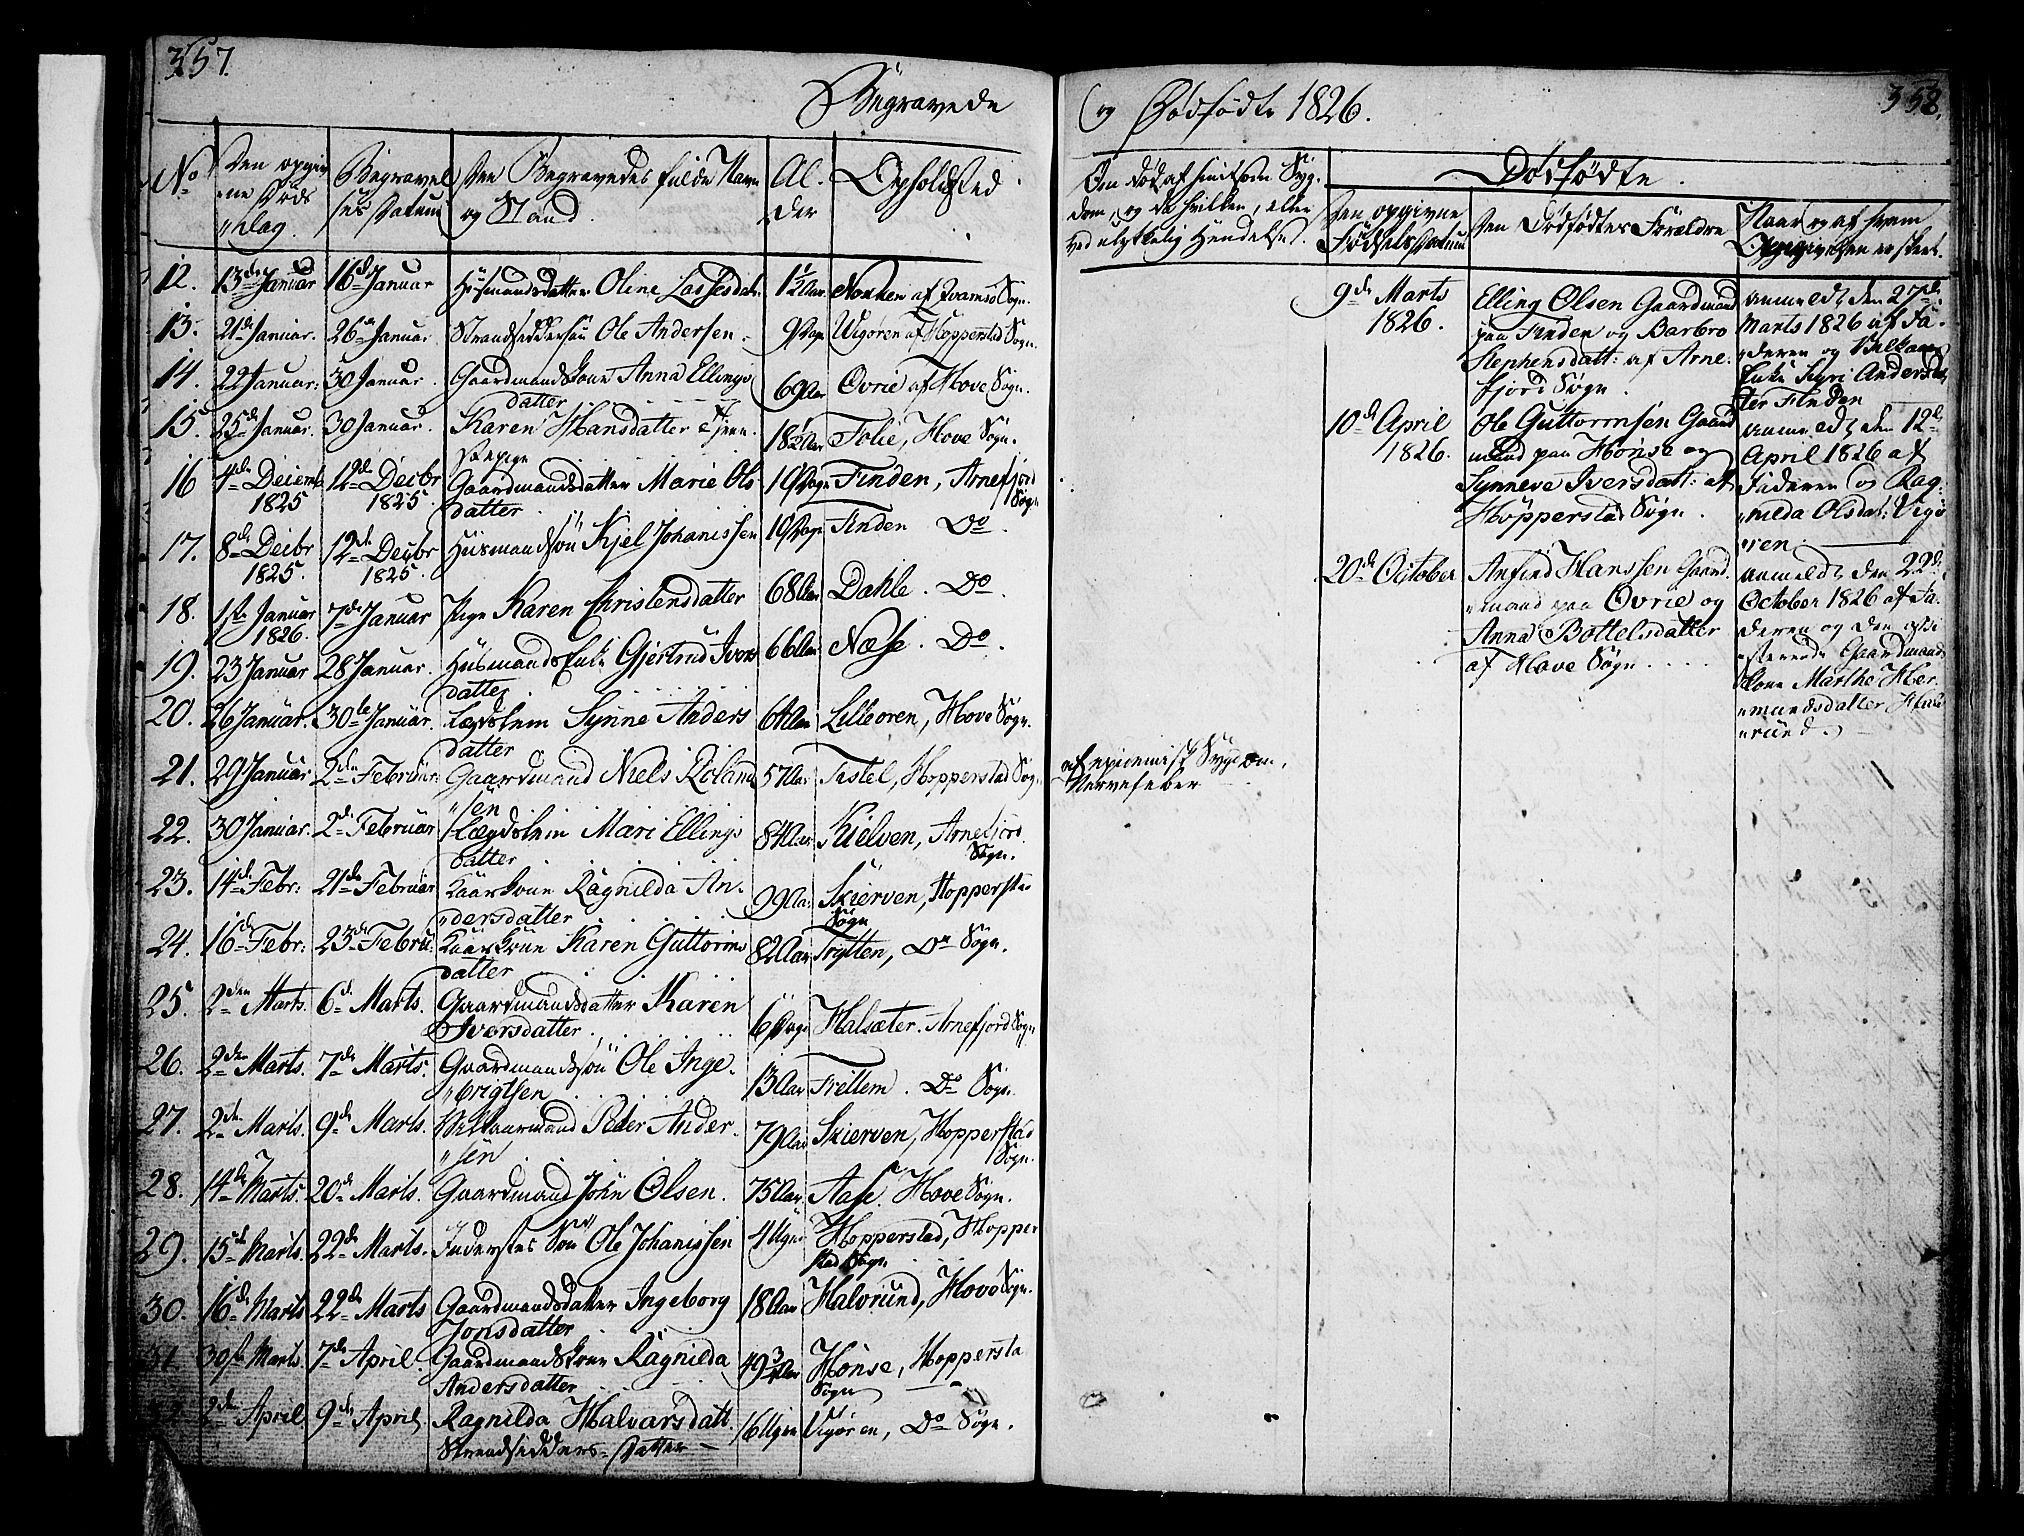 357.
Begravede
No
Den opgiv
ne Døds
"dag.
Begravel
ses Datum
Den Begravedes fulde Navn
og Stand.
Al-
der
Opholdsted.
12. 13de Januar 16d Januar Huusmandsdatter Oline Lassesdatr 1½ Aar Nonken af Qvamsø Sogn.
13. 21de Januar. 26de Januar Strandsiddersøn Ole Andersen. 9 Dage Vigøren af Hopperstad Sogn.
14. 22 Januar: 30 Januar. Gaardmandskone Anna Ellings
datter 69 Aar Øvrie af Hove Sogn.
15. 25de Januar. 30 Januar. Karen Hansdatter Tjene-
stepige 18½ Aar Tolie, Hove Sogn.
16 4de Decemb
1825 12de Decbr
1825. Gaardmandsdatter Marie Ols
datter. 19 Dage Finden, Arnefjord
Sogn
17. 8de Decbr
1825. 12de Decbr
1825. Huusmandssøn Kjel Johanissen 19 Dage Finden Do.
18. 1ste Januar
1826. 7de Januar Pige Karen Christensdatter 68 Aar Dahle. Do.
19. 23 Januar 28 Januar. Huusmands Enke Gjertrud Ivers
datter 66 Aar Næse. Do.
20. 26 Januar. 30te Januar. Lægdslem Synne Anders
datter 64 Aar Lilleøren, Hove Sogn.
21. 29 Januar 2den Februar. Gaardmand Niels Roland
"sen 57 Aar Tistel, Hopperstad Sogn
22. 30 Januar. 2de Februar Lægdslem Mari Ellings
datter 84 Aar Kielven, Arnefjord
Sogn.
23. 14de Febr: 21de Februar Kaarkone Ragnilda An-
"dersdatter 29 Aar Skierven, Hopperstad
Sogn
24. 16de Febr: 23de Febru: Kaarkone Karen Guttorms
datter 82 Aar Trytten, Do Sogn.
25. 2den Marts. 6d. Marts. Gaardmandsdatter Karen
Iversdatter. 6 Dage Halsæter. Arnefjord Sogn
26. 2den Marts. 7de Marts. Gaardmandssøn Ole Inge-
"brigtsen 13 Aar Frettem. Do Sogn.
27. 2de Marts. 9de Marts. Vilkaarmand Peder Ander-
"sen 79 Aar Skierven, Hopperstad
Sogn.
28. 14de Marts. 20de Marts. Gaardmand John Olsen. 75 Aar Aase. Hove Sogn.
29. 15de Marts. 22de Marts. Inderstes Søn Ole Johanissen 4 Uger Hopperstad, Hopper
stad Sogn
30. 16de Marts 22de Marts Gaardmandsdatter Ingeborg
Jonsdatter 18 Aar Halvrund, Hove Sogn.
31 30te Marts. 7de April. Gaardmandskone Ragnilda
Andersdatter 49¾ Aar Hønse, Hopperstad
Sogn
32. 2den April 9de April Ragnilda Halvarsdatt.
Strandsidders-Datter 16 Uger Vigøren, Do Sogn.
358.
og Dødfødte 1826.
Om død af smitsom Syg-
dom, og da hvilken, eller
ved ulykkelig Hendelse.
af epidemisk Sygdom,
Nervefeber
Dødfødte.
Den opgivne
Fødsels Datum
Den Dødfødtes Forældre
Naar og af hvem
Opgivelsen er skeet.
9de Marts
1826.
Elling Olsen Gaardmand
paa Finden og Barbro
Stephensdatt: af Arne-
fjord Sogn.
anmeldt den 27de
Marts 1826 af Fa-
"deren og Vilkaars
Enke Syri Andersdat
ter Finden
10de April
1826.
Ole Guttormsen Gaard
mand paa Hønse og
Synneve Iversdatt: af
Hopperstad Sogn.
anmeldt den 12te
April 1826 af
Faderen og Rag-
"nilda Olsdat: Vigø
"ren.
20de October
Anfind Hanssen Gaard-
"mand paa Øvrie og
Anna Bottelsdatter
af Hove Sogn.
anmeldt den 22de
October 1826 af Fa-
deren og den assi
"sterende Gaardmands
kone Marthe Her-
"mundsdatter Halv
"rund.